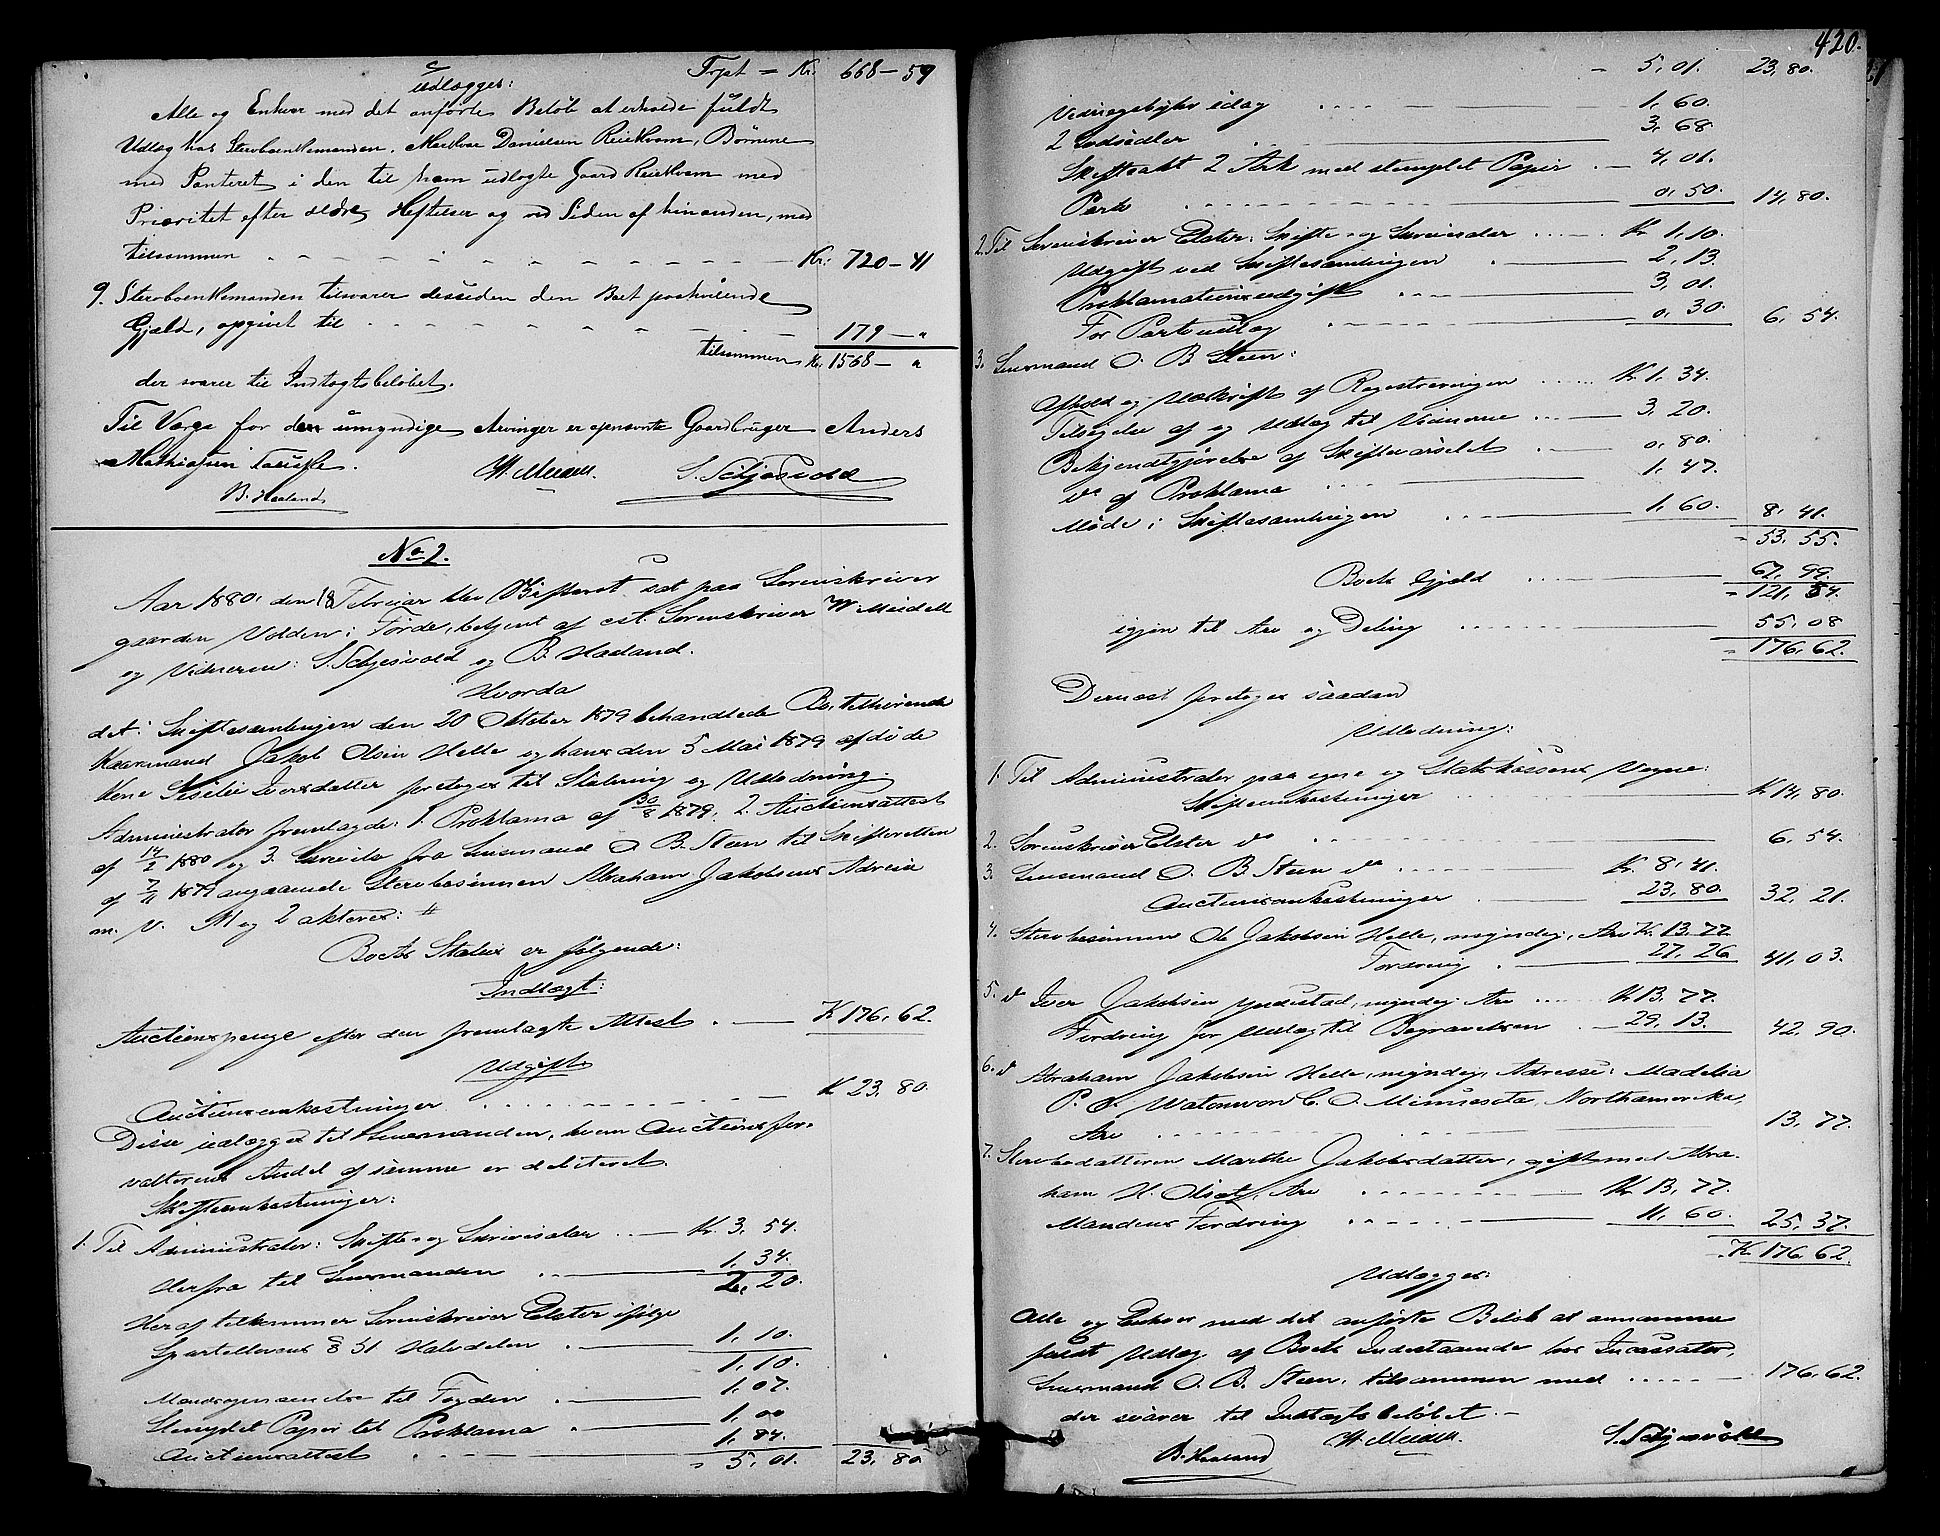 Trpt = Kr. 668 – 59
udlægges:
Alle og Enhver med det anførte Beløb at erholde fuldt
Udlæg hos Sterboenkemanden, Danielsen Reiekvam, Børnene
med Panteret i den til ham udlagte Gaard Reiekvam med
Prioritet efter ældre Heftelser og ved Siden af hinanden, med
tilsammen Kr. 720 – 41
9. Sterboenkemanden tilsvarer desuden den Boet paahvilende
Gjæld, opgivet til 179 – "
tilsammen Kr. 1568 – "
der svarer til Indtægtsbeløbet.
Til Værge for de umyndige Arvinger er opnævnte Gaardbruger Anders
Mathiasen
W. Meidell S. Schjesvold
B. Haaland
No 2.
Aar 1880, den 18 Februar blev Skifteret sat paa Sorenskriver
gaarden Volden i Førde, betjent af cst. Sorenskriver W Meidell
og Vidnerne: S. Schjesvold og B. Haaland.
Hvorda
det i Skiftesamlingen den 20 Oktober 1879 behandlede Bo, tilhørende
Kaarmand Jakob Olsen Helle og hans den 5 Mai 1879 afdøde
Kone Sisilie Iversdatter foretoges til Slutning og Udlodning.
Administrator fremlagde: 1. Proklama af 30/8 1879, 2. Auctionsattest
af 14/2 1880 og 3. Skrivelse fra Lensmand O. B. Steen til Skifteretten
af 7/11 1879 angaaende Sterbosønnen Abraham Jakobsens Adresse
m. v. 1 og 2 akteres: #
Boets Status er følgende:
Indtægt:
Auctionspenge efter den fremlagte Attest K 176, 62.
Udgift
Auctionsomkostninger K 23, 80.
Disse udlægges til Lensmanden, hvem Auctionsfor-
valterens Andel af samme er debiteret.
Skifteomkostninger:
1. Til Administrator: Skifte- og Skriversalær Kr. 3, 54.
Herfra til Lensmanden 1, 34.
2, 20.
Heraf tilkommer Sorenskriver Elster ifølge
Sportellovens § 51 Halvdelen 1, 10.
1, 10.
til Fogden 1, 07.
Stemplet Papir til Proklama 1, 00
Auctionsattest 1, 84.
= 5, 01. 23, 80.
420.
= 5, 01. 23, 80.
idag 1, 60.
2 Lodsedler 3, 68.
Skifteakt 2 Ark med stemplet Papir 4, 01.
Porto 0, 50. 14, 80.
2. Til Sorenskriver Elster: Skifte- og Skriversalær Kr 1, 10.
Udgift ved Skiftesamlingen 2, 13.
Proklamationsudgift 3, 01.
For Portoudlæg 0, 30. 6, 54.
3. Lensmand O. B. Steen:
Afhold og Udskrift af Registreringen Kr 1, 34.
Tilsigelse af og Udlæg til Vidnerne 3, 20.
Bekjendtgjørelse af Skiftevarselet 0, 80.
do af Proklama 1, 47.
Møde i Skiftesamlingen 1, 60. 8, 41.
= 53, 55.
Boets Gjæld 67, 99.
= 121, 54.
igjen til Arv og Deling 55, 08
= 176, 62.
Dernæst foretoges saadan
Udlodning:
1. Til Administrator paa egne og Statskassens Vegne:
Skifteomkostninger K 14, 80.
2. Sorenskriver Elster do 6, 54.
3. Lensmand O. B Steen do Kr. 8, 41.
Auctionsomkostninger 23, 80. 32, 21.
4. Sterbosønnen Ole Jakobsen Helle, myndig, Arv K. 13, 77
Fordring 27, 26 41, 03.
5. do Iver Jakobsen Yndestad, myndig, Arv K 13, 77.
Fordring for Udlæg til Begravelsen 29, 13. 42, 90.
6. do Abraham Jakobsen Helle, myndig, Adresse: Madelia
P. O. Watonwon C. O. Minnesota, Northamerika,
Arv 13, 77.
7. Sterbodatteren Marthe Jakobsdatter, gift med Abra-
ham H. Olset, Arv Kr 13, 77.
Mandens Fordring 11, 60. 25, 37.
K 176, 62.
Udlægges:
Alle og Enhver med det anførte Beløb at annamme
fuldt Udlæg af Boets Indestaaende hos Incassator,
Lensmand O. B. Steen, tilsammen med 176, 62.
der svarer til Indtægtsbeløbet.
B. Haaland W. Meidell. S. Schjesvold